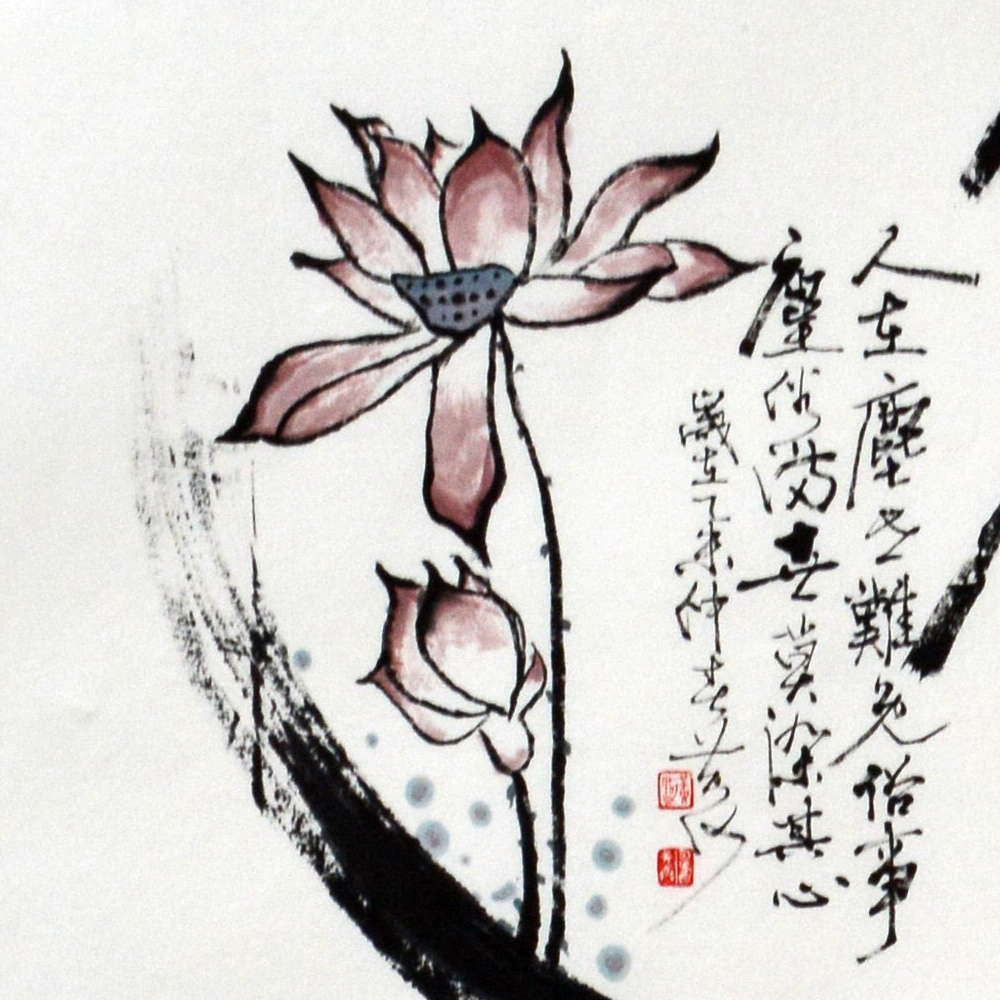 人在塵世難免俗事
塵俗滿世莫染其心
歲在乙未仲春